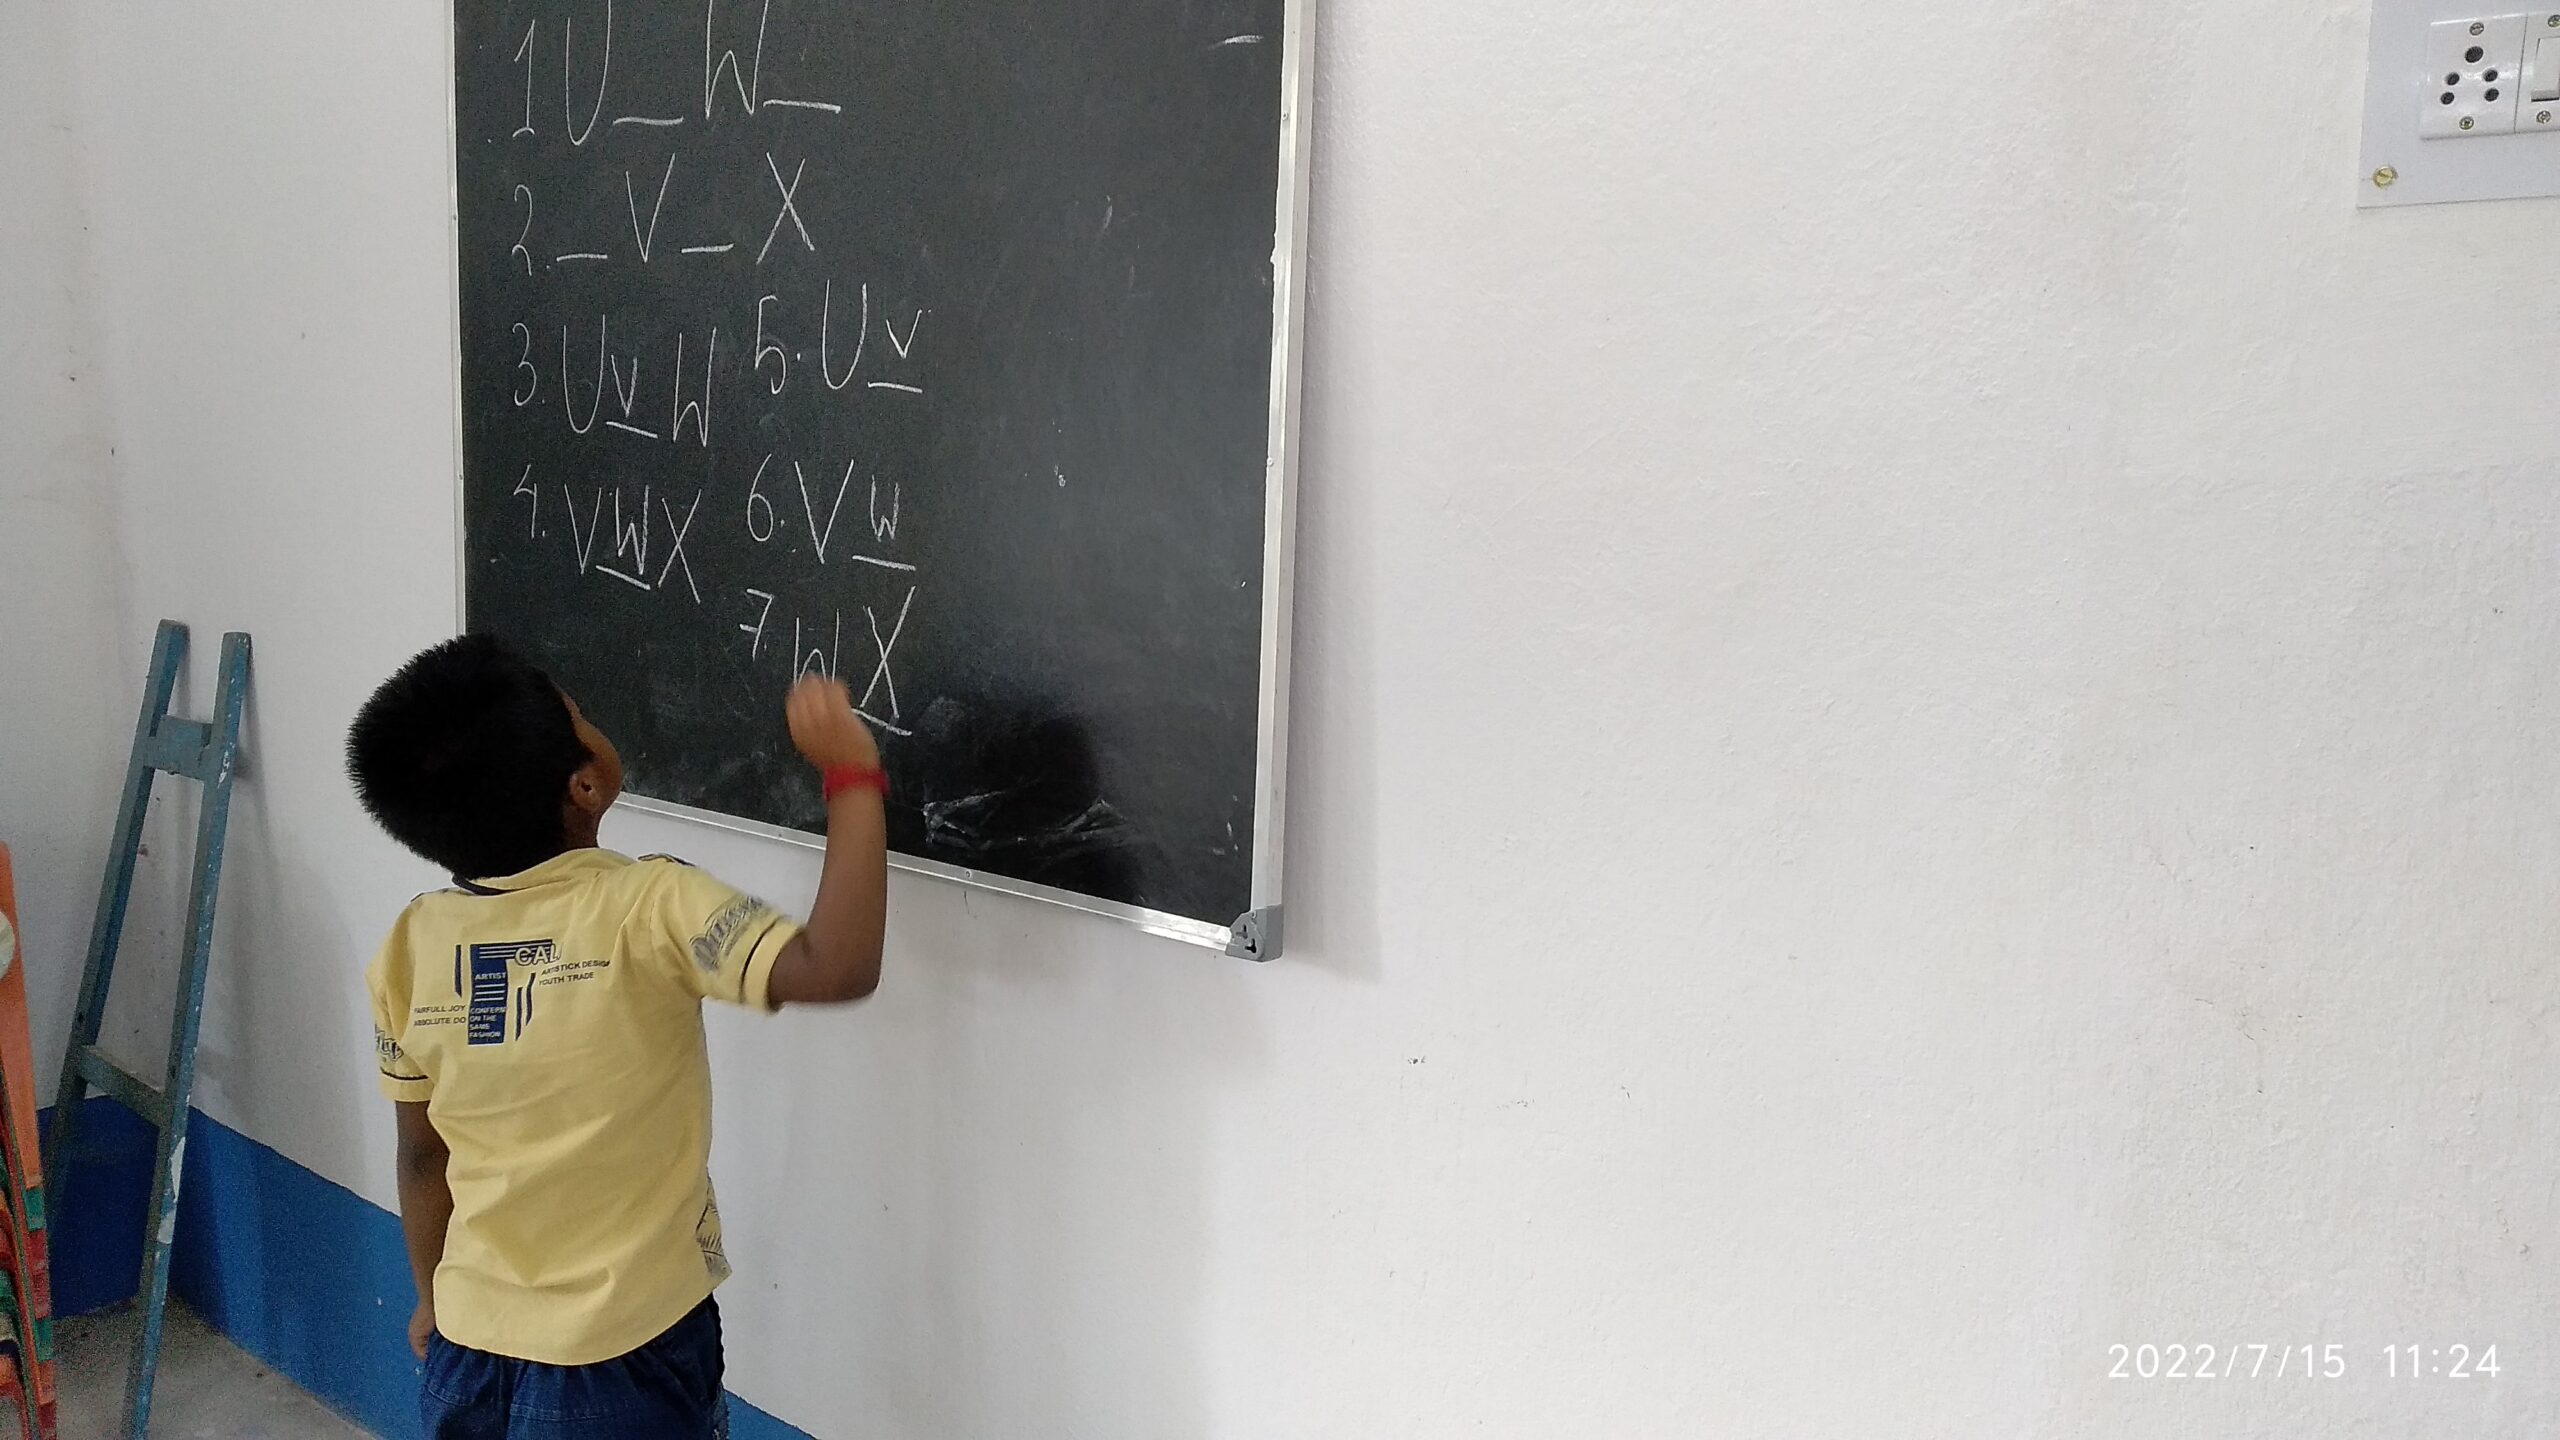 1 U _ W _
2. _ V _ X
3. U V W
4. V W X
5. U V
6. V W
7. W X
CAL
ARTIST
ARTISTICK DESIGN
YOUTH TRADE
FAIRFULL JOY
ABSOLUTE DO
CONFERM
ON THE
SAME
FASHION
2022/7/15 11:24